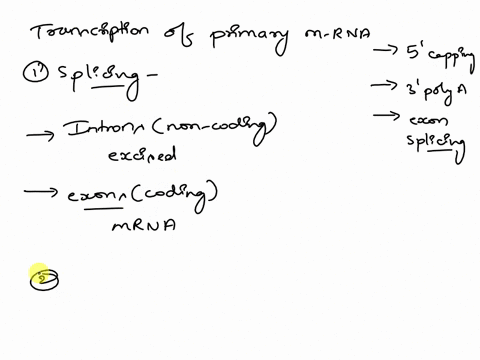 Transcription of primary m-RNA
① Splicing -
→ Introns (non-coding)
excised
→ exons (coding)
mRNA
②
→ 5' capping
→ 3' poly A
→ exon
splicing